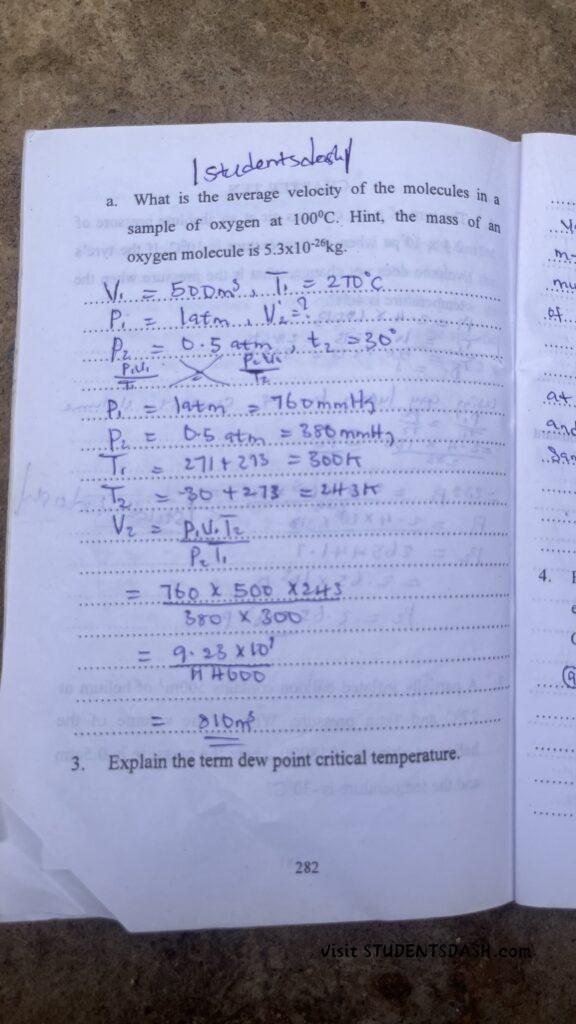 1studentsdash
a. What is the average velocity of the molecules in a
sample of oxygen at 100⁰C. Hint, the mass of an
oxygen molecule is 5.3x10⁻²⁶kg.
V₁ = 500m³, T₁ = 270°C
P₁ = 1atm, V₂ = ?
P₂ = 0.5 atm, t₂ = 30°
P₁V₁ = P₂V₂
T₁ T₂
P₁ = 1atm = 760mmHg
P₂ = 0.5 atm = 380mmHg
T₁ = 271 + 273 = 300K
T₂ = -30 + 273 = 243K
V₂ = P₁V₁T₂
P₂T₁
= 760 x 500 x 243
380 x 300
= 9.23 x 10⁷
114000
= 810m³
3. Explain the term dew point critical temperature.
282
4.
at
and
of
Visit STUDENTSDASH.com